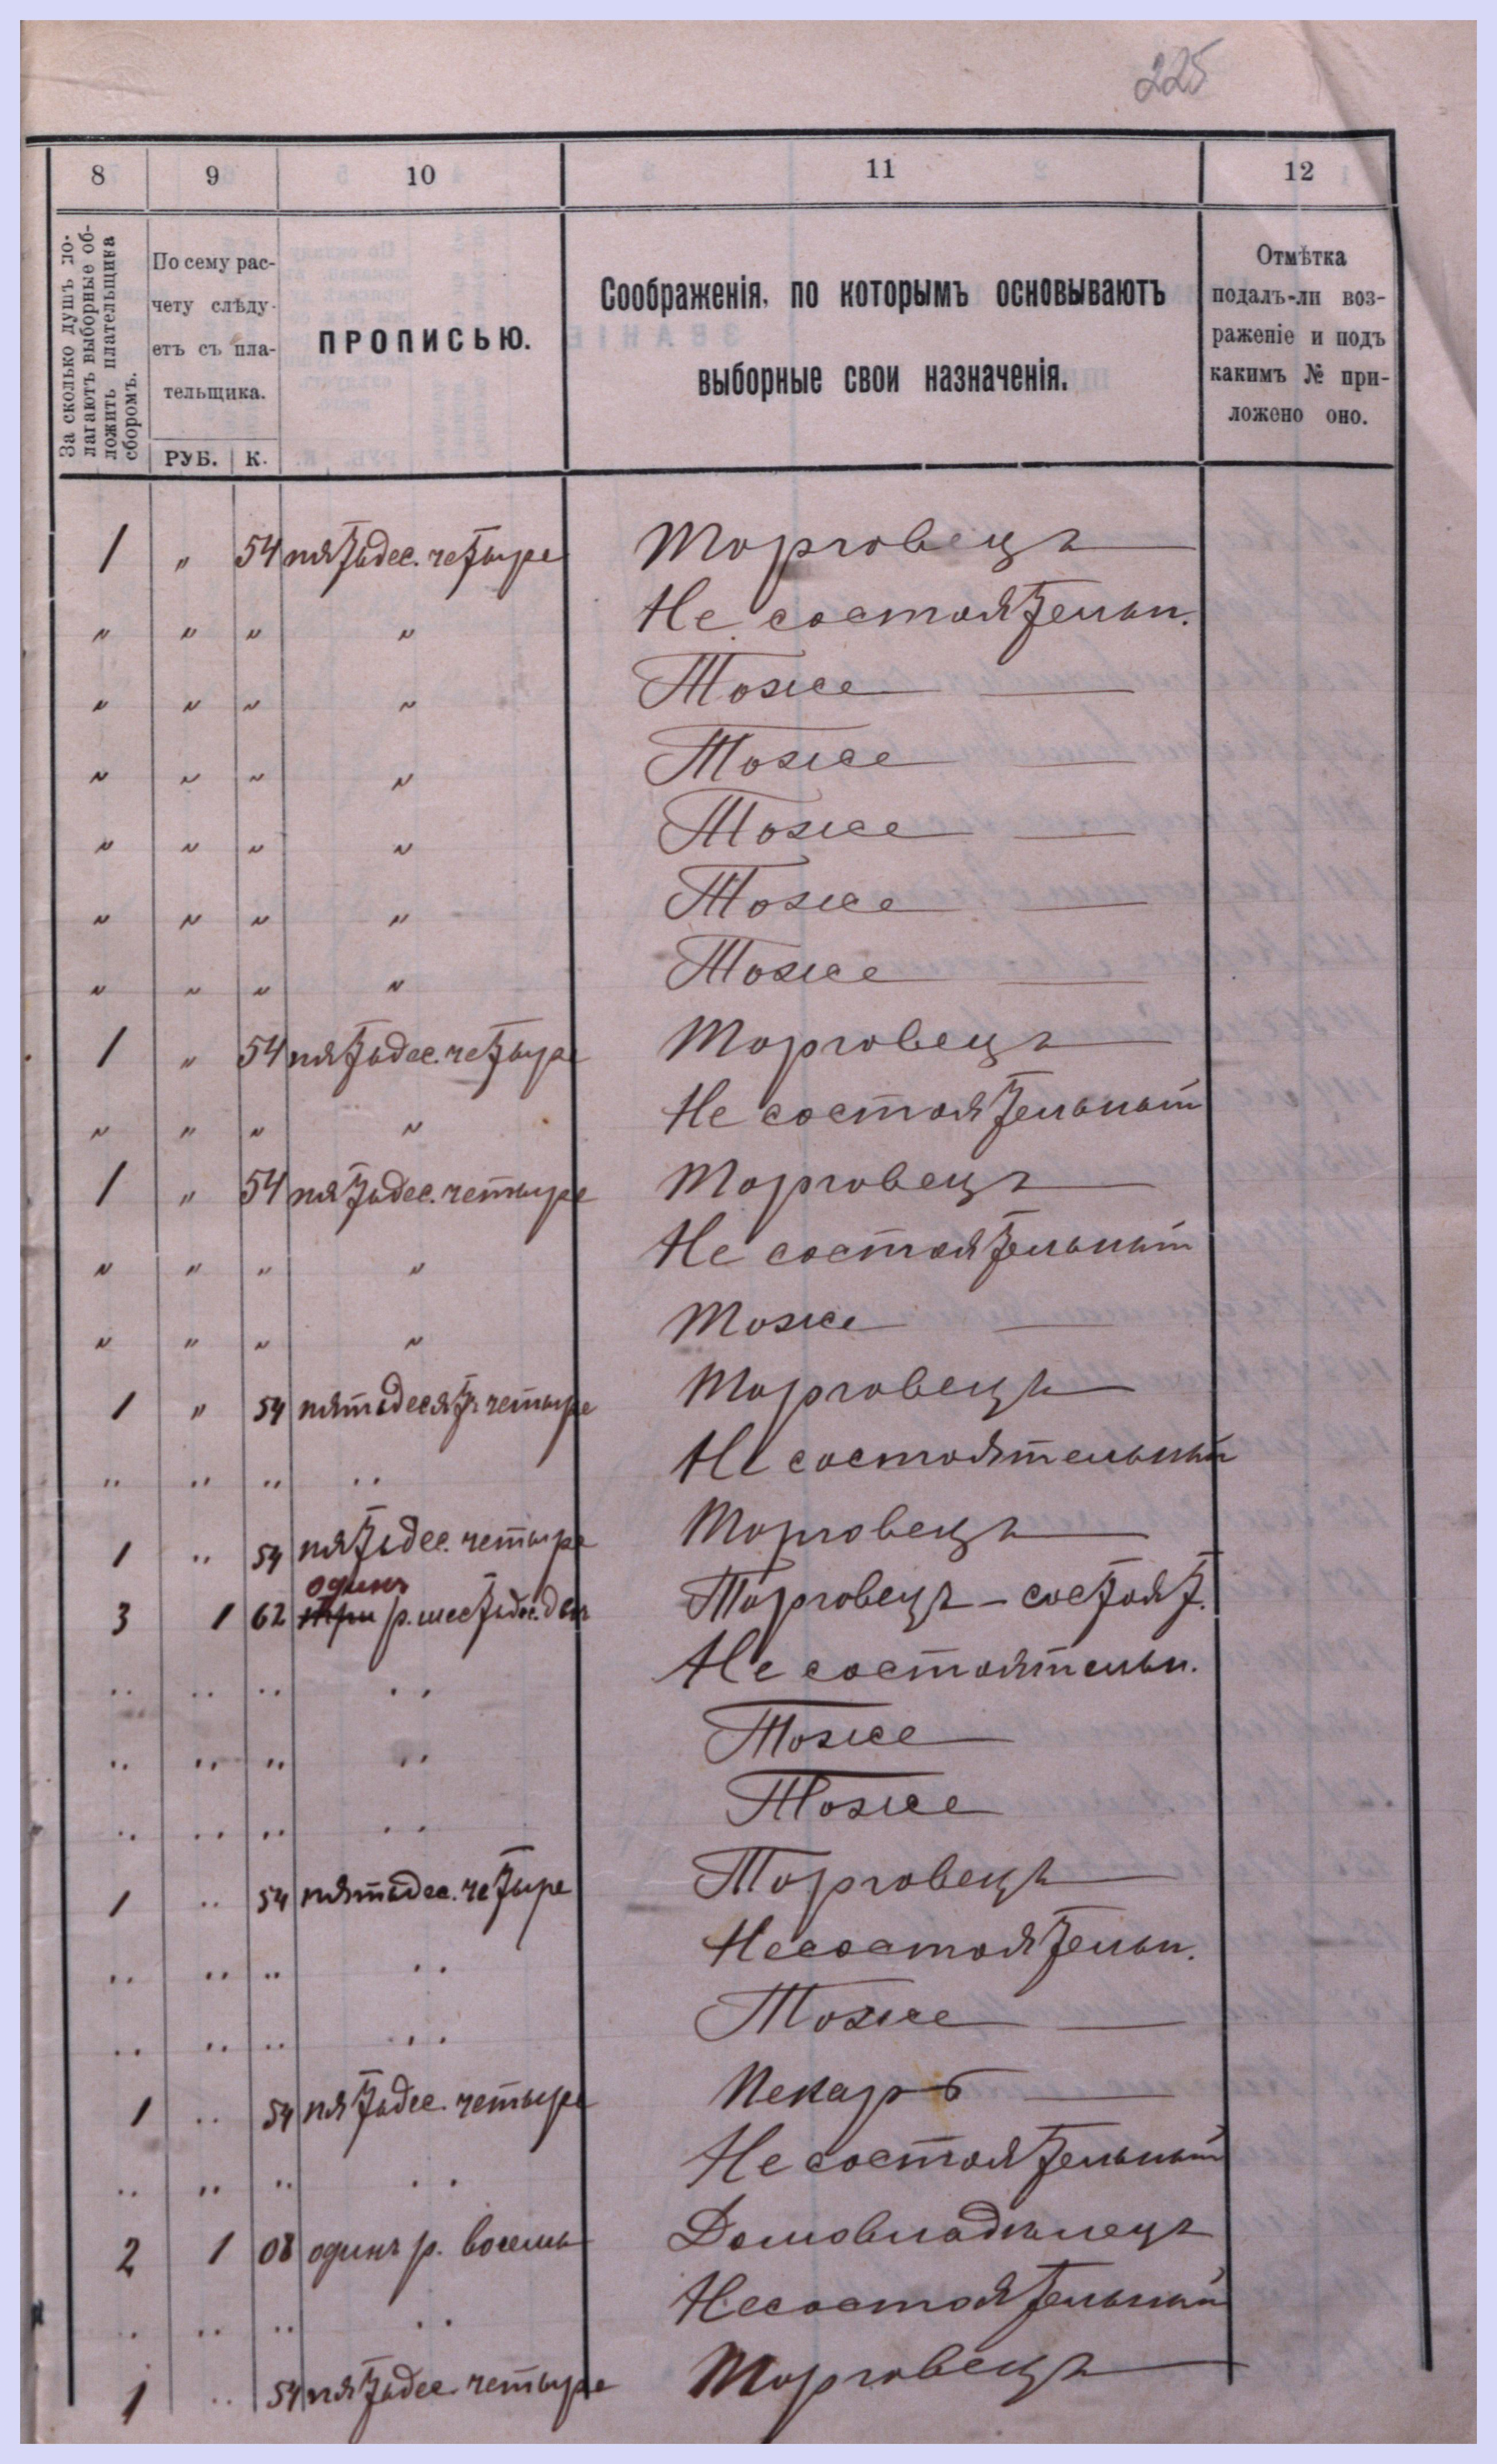 225
8 9 10 11 12
За сколько душъ по-
лагаютъ выборные об-
ложить плательщика
сборомъ.
По сему рас-
чету слѣду-
етъ съ пла-
тельщика.
РУБ. К.
ПРОПИСЬЮ.
Соображенія, по которымъ основываютъ
выборные свои назначенія.
Отмѣтка
подалъ-ли воз-
раженіе и подъ
какимъ № при-
ложено оно.
1 " 54 пятьдес. четыре Торговецъ
" " " " Не состоятельн.
" " " " Тоже
" " " " Тоже
" " " " Тоже
" " " " Тоже
" " " " Тоже
1 " 54 пятьдес. четыре Торговецъ
" " " " Не состоятельный
1 " 54 пятьдес. четыре Торговецъ
" " " " Не состоятельный
" " " " Тоже
1 " 54 пятьдесятъ четыре Торговецъ
" " " " Не состоятельный
1 " 54 пятьдес. четыре Торговецъ
одинъ
3 1 62 три р. шестьдес. два Торговецъ - состоят.
" " " " Не состоятельн.
" " " " Тоже
" " " " Тоже
1 " 54 пятьдес. четыре Торговецъ
" " " " Несостоятельн.
" " " " Тоже
1 " 54 пятьдес. четыре Пекарь
" " " " Не состоятельный
2 1 08 одинъ р. восемь Домовладѣлецъ
" " " " Несостоятельный
1 " 54 пятьдес. четыре Торговецъ